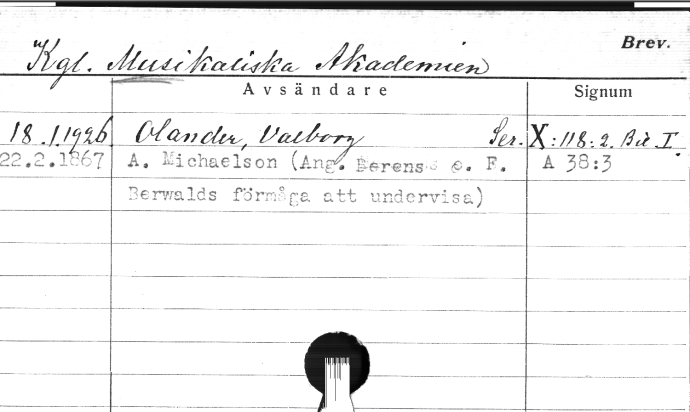 Brev.
Kgl. Musikaliska Akademien
Avsändare Signum
18.1.1926 Olander, Valborg Ser. X:118:2. Bil I.
22.2.1867 A. Michaelson (Ang. Berens o. F. A 38:3
Berwalds förmåga att undervisa)